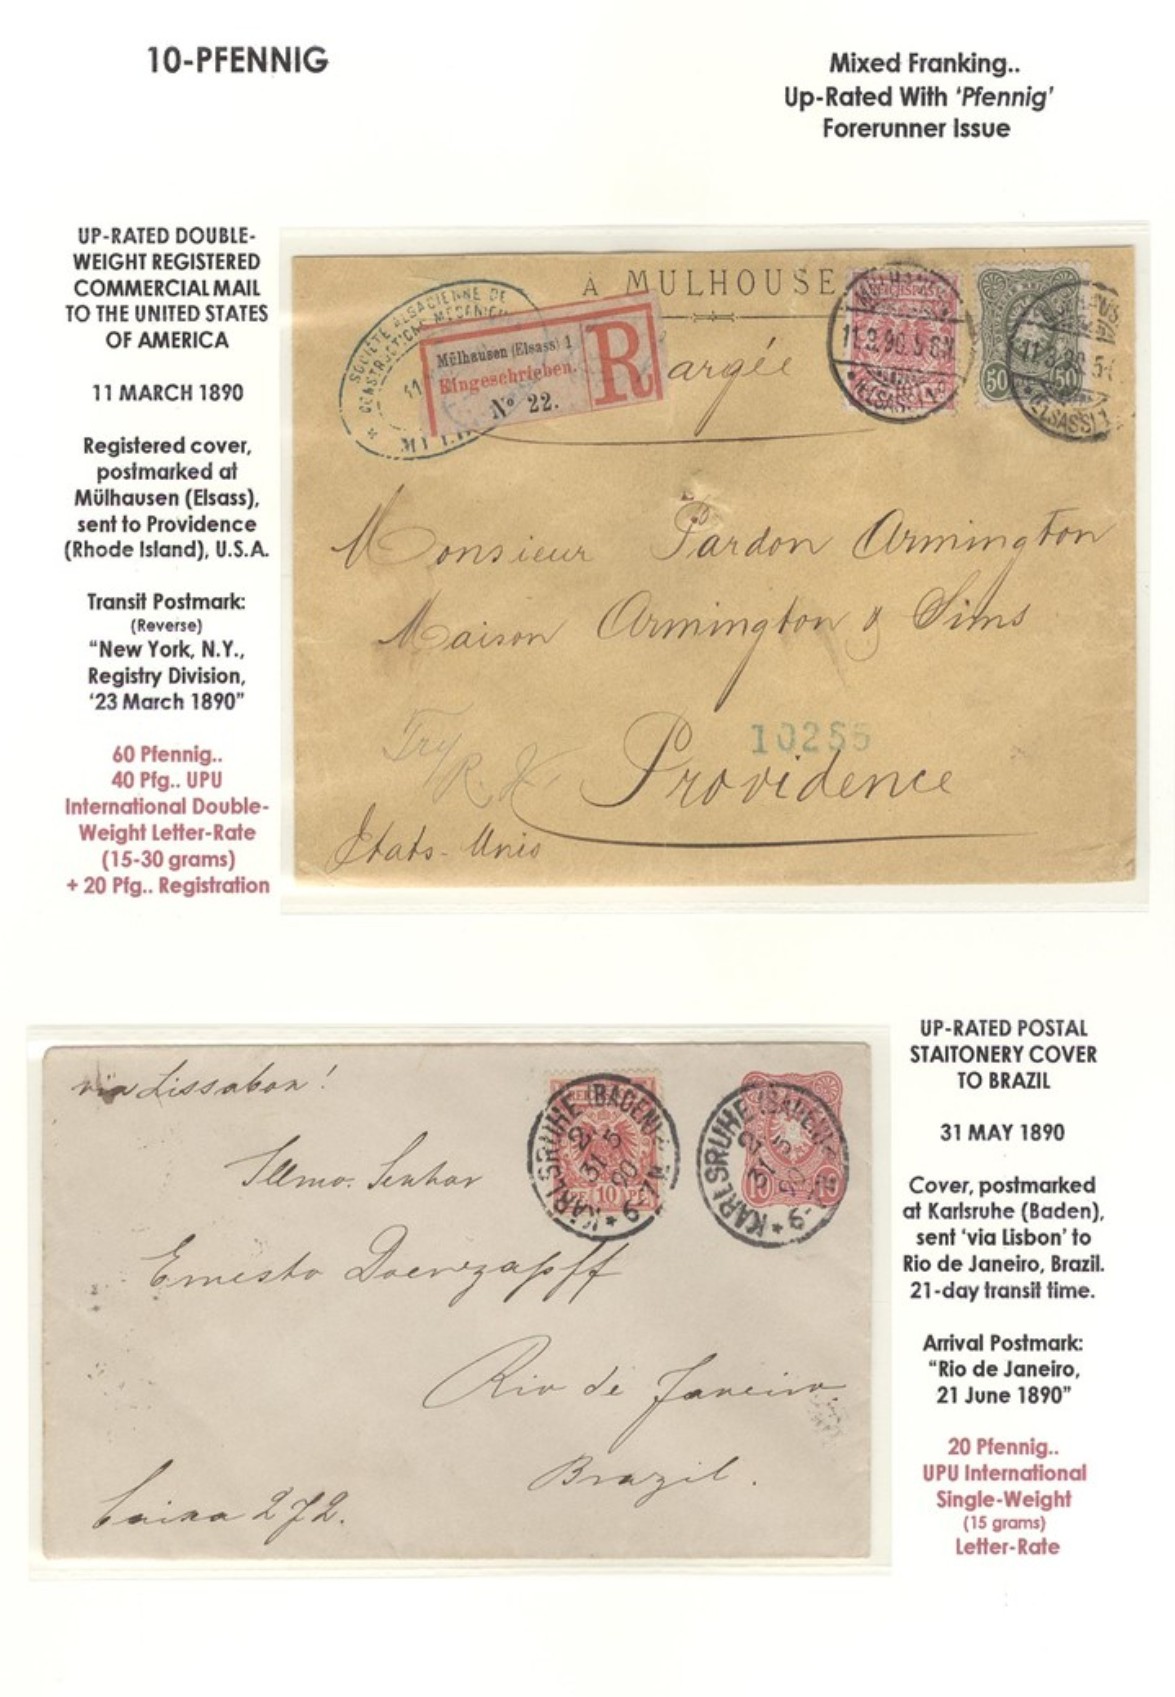 10-PFENNIG
Mixed Franking..
Up-Rated With ‘Pfennig’
Forerunner Issue
UP-RATED DOUBLE-
WEIGHT REGISTERED
COMMERCIAL MAIL
TO THE UNITED STATES
OF AMERICA
11 MARCH 1890
Registered cover,
postmarked at
Mülhausen (Elsass),
sent to Providence
(Rhode Island), U.S.A.
Transit Postmark:
(Reverse)
“New York, N.Y.,
Registry Division,
‘23 March 1890”
60 Pfennig..
40 Pfg.. UPU
International Double-
Weight Letter-Rate
(15-30 grams)
+ 20 Pfg.. Registration
À MULHOUSE
SOCIÉTÉ ALSACIENNE DE
CONSTRUCTIONS MÉCANIQU
Mülhausen (Elsass) 1
Eingeschrieben.
No 22.
R
argée
REICHSPOST
11.3.90.5-6N
(ELSASS) 1
50 50
11.3.90.5-
(ELSASS) 1
Monsieur Pardon Armington
Maison Armington & Sims
10255
Try
Providence
Etats-Unis
via Lissabon!
KARLSRUHE (BADEN)
31 5
90
6-7N
PF 10 PF
KARLSRUHE (BADEN)
31 5
90
6-
10 10
Illmo. Senhor
Ernesto
Rio de Janeiro
Brazil.
Caixa 272.
UP-RATED POSTAL
STAITONERY COVER
TO BRAZIL
31 MAY 1890
Cover, postmarked
at Karlsruhe (Baden),
sent ‘via Lisbon’ to
Rio de Janeiro, Brazil.
21-day transit time.
Arrival Postmark:
“Rio de Janeiro,
21 June 1890”
20 Pfennig..
UPU International
Single-Weight
(15 grams)
Letter-Rate